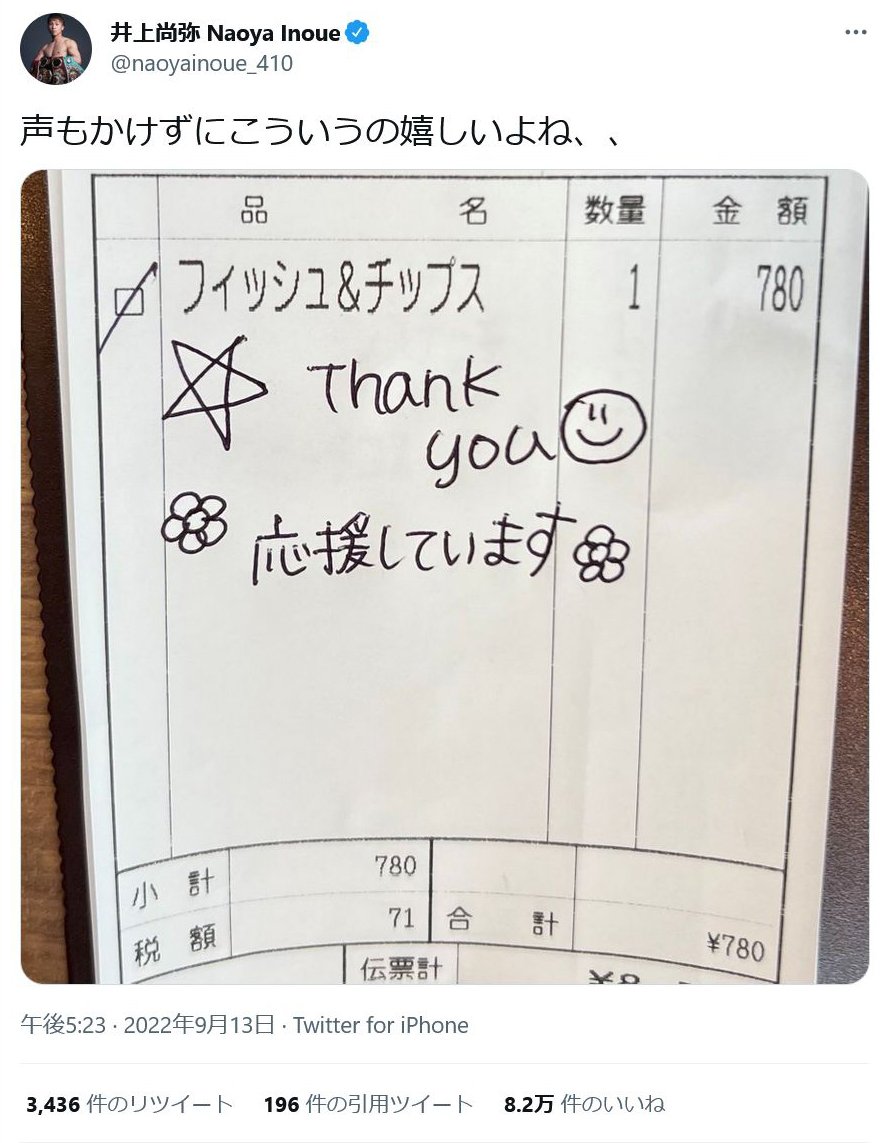 井上尚弥 Naoya Inoue
@naoyainoue_410
声もかけずにこういうの嬉しいよね、、
品 名 数量 金 額
フィッシュ&チップス 1 780
Thank
you
応援しています
小 計 780
税 額 71 合 計 ¥780
伝票計
午後5:23 · 2022年9月13日 · Twitter for iPhone
3,436 件のリツイート 196 件の引用ツイート 8.2万 件のいいね